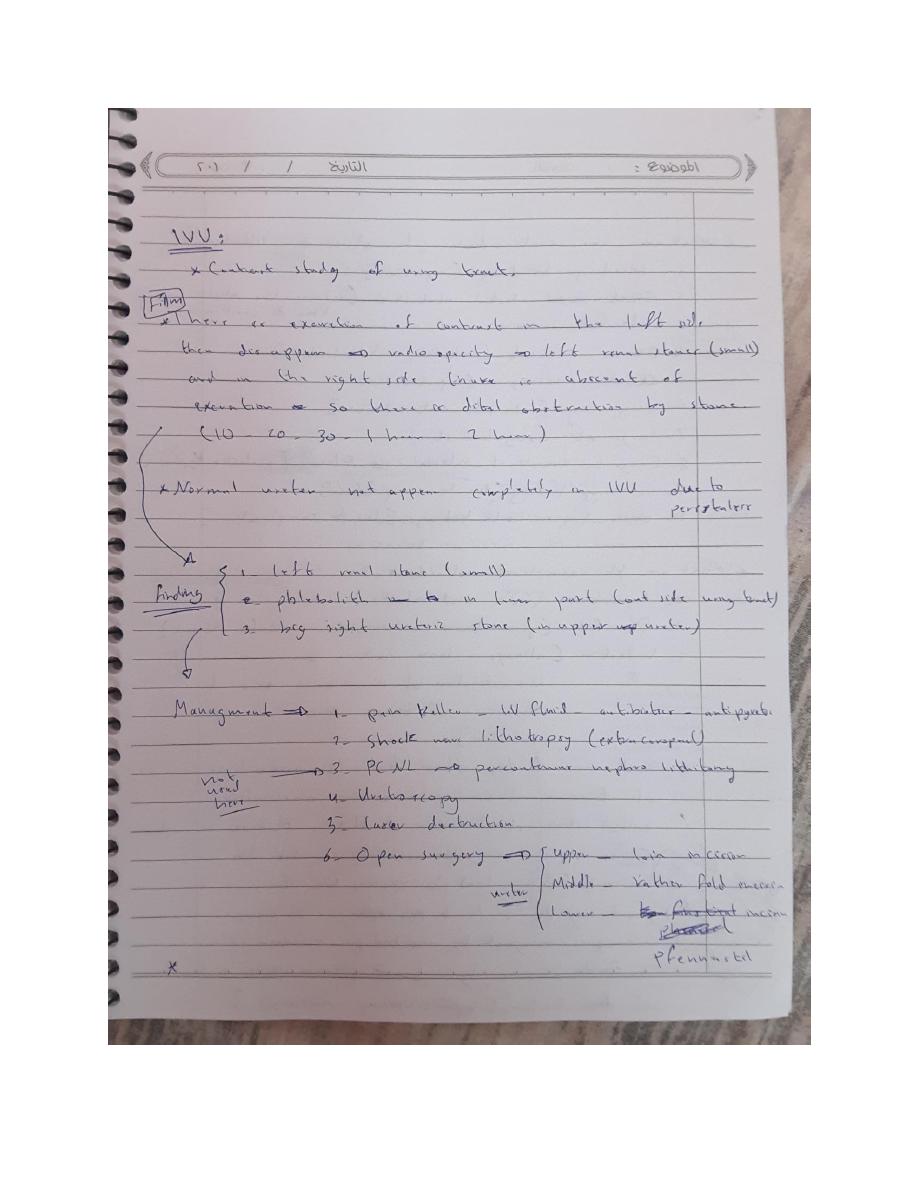 الموضوع : التاريخ / / ٢٠١
IVU :
* Contrast study of urinary tract.
Film
* There is excretion of contrast in the left side
then disappear ⇒ radio opacity ⇒ left renal stones (small)
and in the right side there is abscent of
excretion so there is distal obstruction by stone
(10 - 20 - 30 - 1 hour - 2 hour)
* Normal ureter not appear completely in IVU due to
peristalsis
1- left renal stone (small)
finding 2- phlebolith in lower part (out side urinary tract)
3- big right ureteric stone (in upper ureter)
Managment ⇒ 1- pain killer - IV fluid - antibiotics - antipyretic
2- Shock wave lithotropsy (extracorporeal)
not used here → 3- PCNL → percontaneous nephro lithitomy
4- Uretroscopy
5- laser destruction
6- Open surgery ⇒ Upper - loin incision
ureter Middle - rather fold incision
Lower - incision
Pfennestil
*